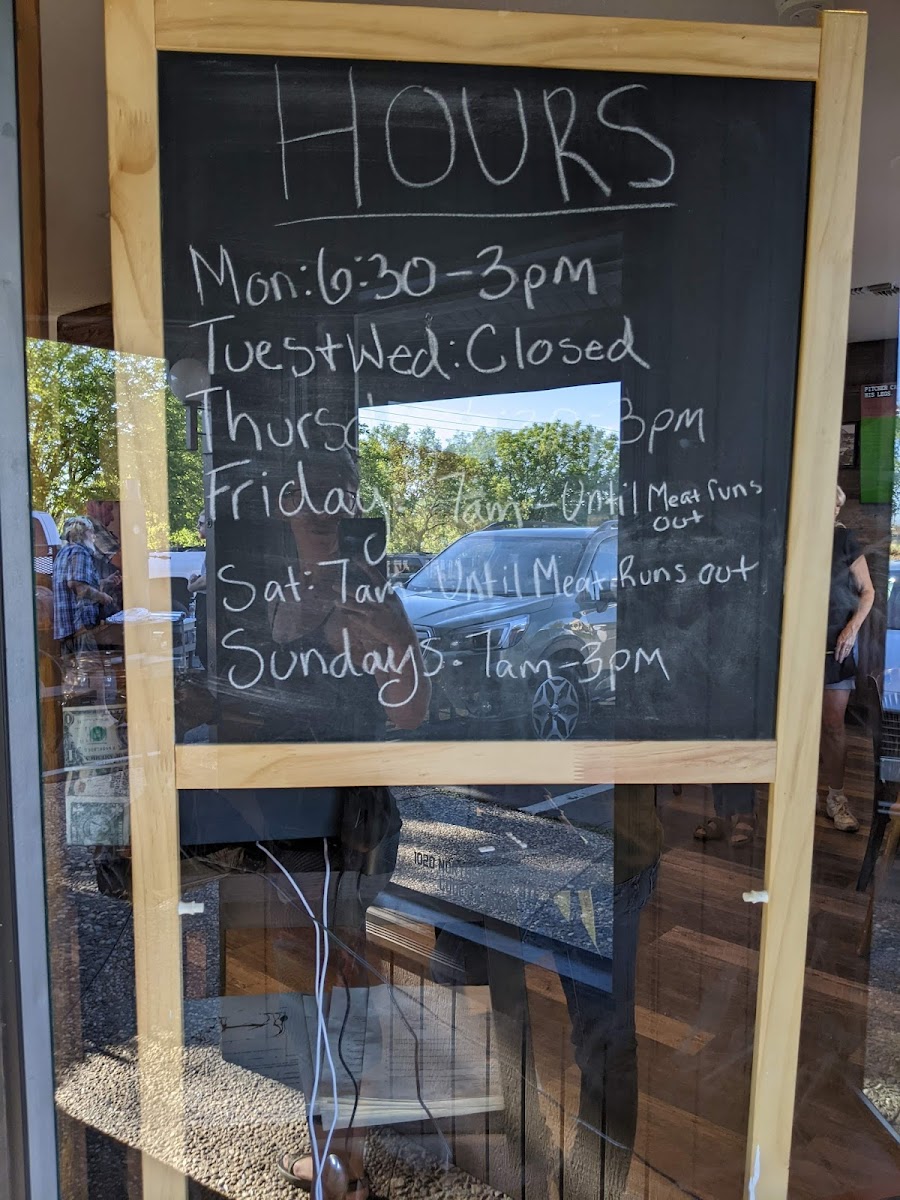 HOURS
Mon: 6:30-3pm
Tues+Wed: Closed
Thursd 6:30-3pm
Friday: 7am-Until Meat runs
out
Sat: 7am Until Meat Runs out
Sundays: 7am-3pm
PITCHER
HIS LEGS
1020